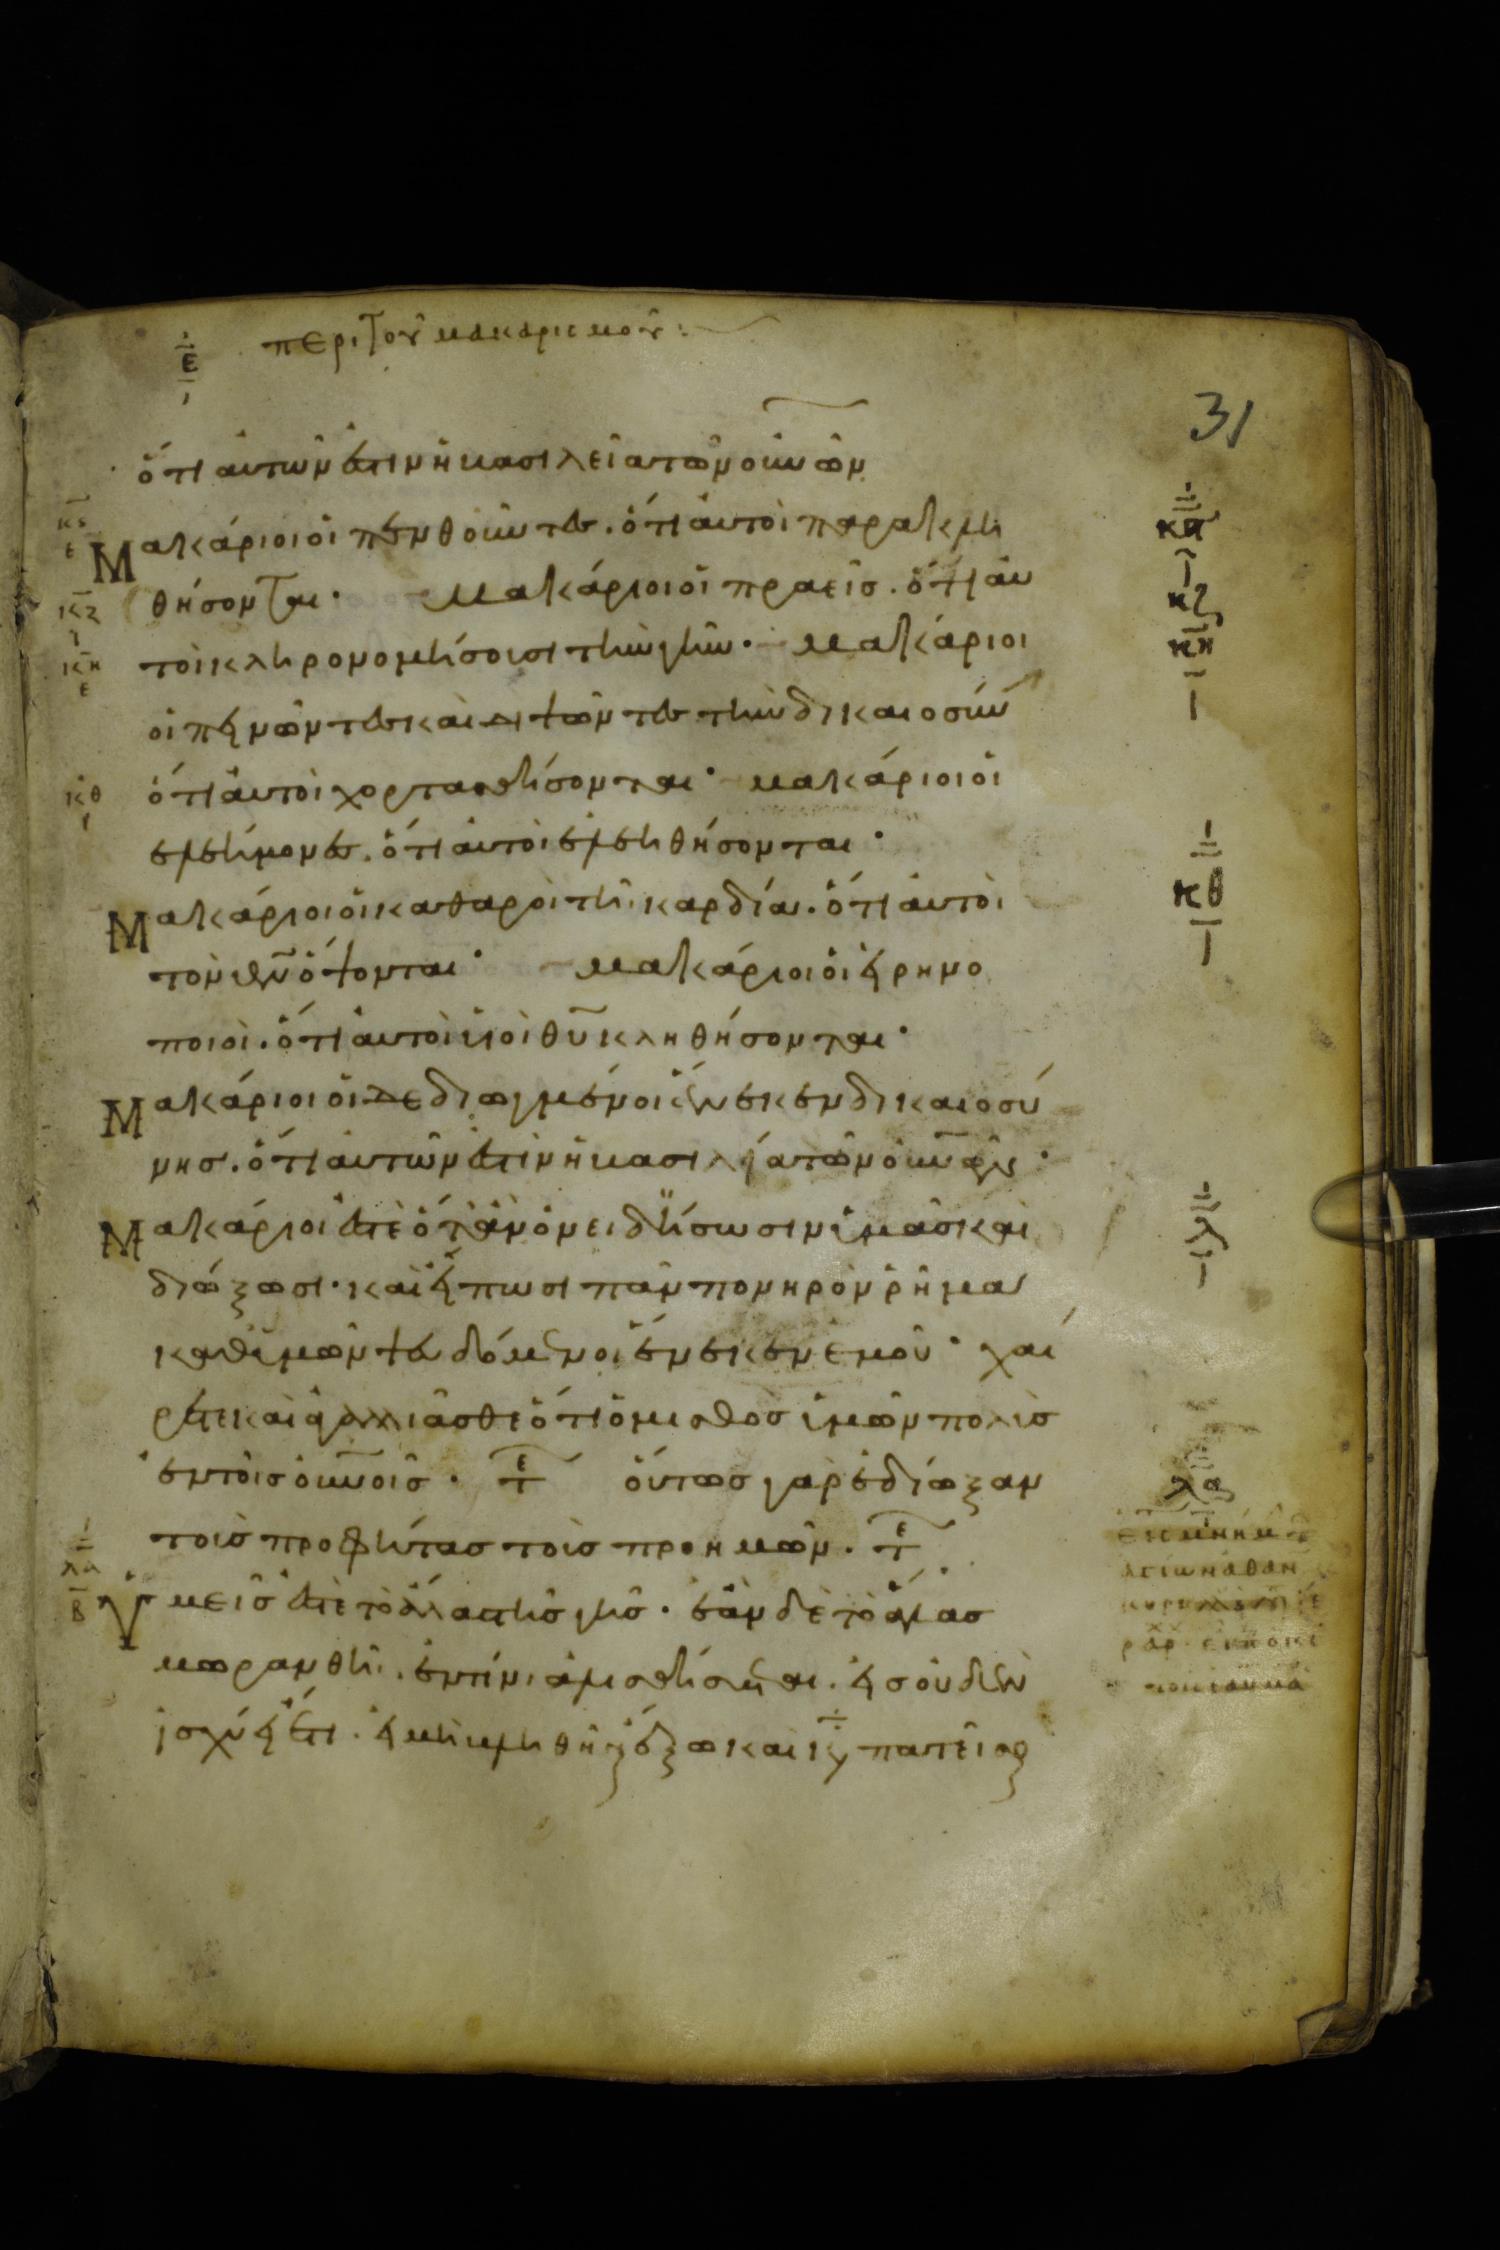 ε περι του μακαρισμου:
31
ὅτι ἀυτῶν ἐστιν ἡ βασιλεία τῶν οὐνῶν
Μακάριοι οἱ πενθοῦντες. ὅτι ἀυτοὶ παρακλη
θήσονται· Μακάριοι οἱ πραεῖς. ὅτι ἀυ
τοὶ κληρονομήσουσι τὴν γῆν· Μακάριοι
οἱ πεινῶντες καὶ διψῶντες τὴν δικαιοσύν
ὅτι ἀυτοὶ χορτασθήσονται· μακάριοι οἱ
ελεήμονες. ὅτι ἀυτοὶ ἐλεηθήσονται·
Μακάριοι οἱ καθαροὶ τῆ καρδία. ὅτι ἀυτοὶ
τὸν θν ὄψονται· Μακάριοι οἱ εἰρηνο
ποιοὶ. ὅτι ἀυτοὶ υἱοὶ θυ κληθήσονται·
Μακάριοι οἱ δεδιωγμένοι ἕνεκεν δικαιοσύ
νης. ὅτι ἀυτῶν ἐστιν ἡ βασιλεία τῶν οὐνῶν·
Μακάριοι ἐστὲ ὅταν ὀνειδήσωσιν ὑμᾶς καὶ
διώξωσι· καὶ εἴπωσι πᾶν πονηρὸν ρῆμα
καθ ὑμῶν ψευδόμενοι ἕνεκεν ἐμοῦ· χαί
ρετε καὶ ἀγαλλιᾶσθε ὅτι ὁ μισθὸς ὑμῶν πολὺς
ἐν τοῖς οὐνοῖς· τε οὕτως γὰρ ἐδίωξαν
τοὺς προφήτας τοὺς προ ημῶν. τε
Ὑμεῖς ἐστὲ τὸ ἅλας τῆς γῆς· ἐὰν δὲ τὸ ἅλας
μωρανθῆ. ἐν τίνι ἁλισθήσεται. εἰς οὐδὲν
ἰσχύει ἔτι. εἰ μὴ βληθῆναι ἔξω καὶ κα πατεῖσθ
κϛ
ε
κζ
κη
ε
κθ
λα
β
κζ
κη
κθ
λ
λα